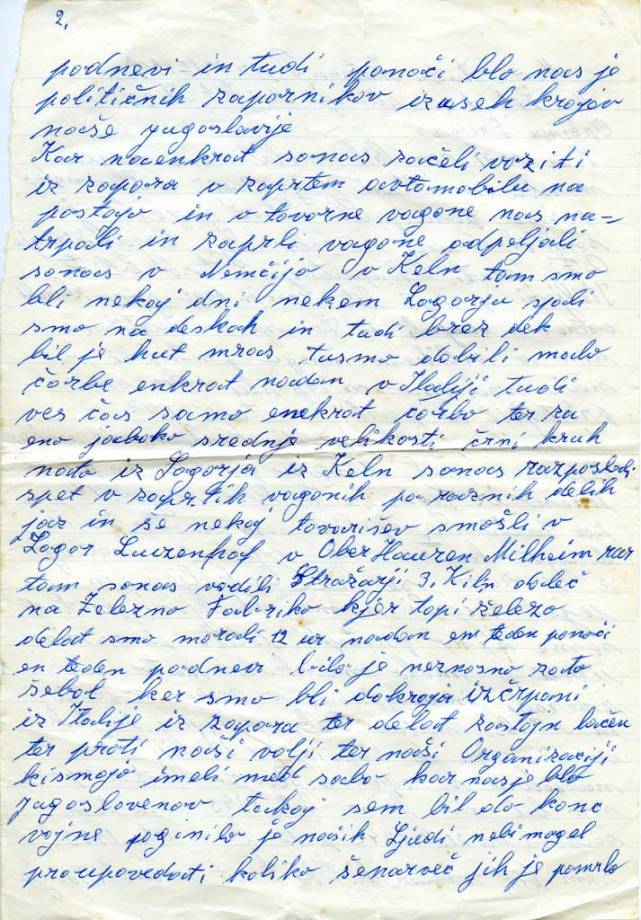 2,
podnevi in tudi ponoči blo nas je
političnih zapornikov izuseh krajov
naše yugoslavije
Kar naenkrat sonas začeli voziti
iz zapora v zaprtem avtomobilu na
postajo in v tovorne vagone nas na-
trpali in zaprli vagone odpeljali
sonas v Nemčijo v Keln tam smo
bli nekaj dni nekem Lagorju spali
smo na deskah in tudi brez dek
bil je hut mraz tusmo dobili malo
čorbe enkrat nadan v Italiji tudi
ves čas samo enekrat čorbo ter za
eno jaboko srednje velikosti črni kruh
nato iz Lagorja iz Keln sonas razposlali
spet v zaprtih vagonih po raznih delih
jaz in še nekaj tovarisev smošli v
Lagor Luizenhof v OberHauzen Milheim rur
tam sonas vodili Stražarji 3. Kiln daleč
na Železno Fabriko kjer topi železo
delat smo morali 12 ur nadan en teden ponoči
en teden podnevi bilo je neznosno zato
šebol ker smo bli dokraja izčrpani
iz Italije iz zapora ter delat zastojn lačen
ter proti naši volji ter naši Organizaciji
kismojo imeli med sabo kar nasje blo
yugoslovenov tukaj sem bil do konc
vojne poginilo je naših Ljudi nebi mogel
proupovedati koliko šenarveč jih je pomrlo